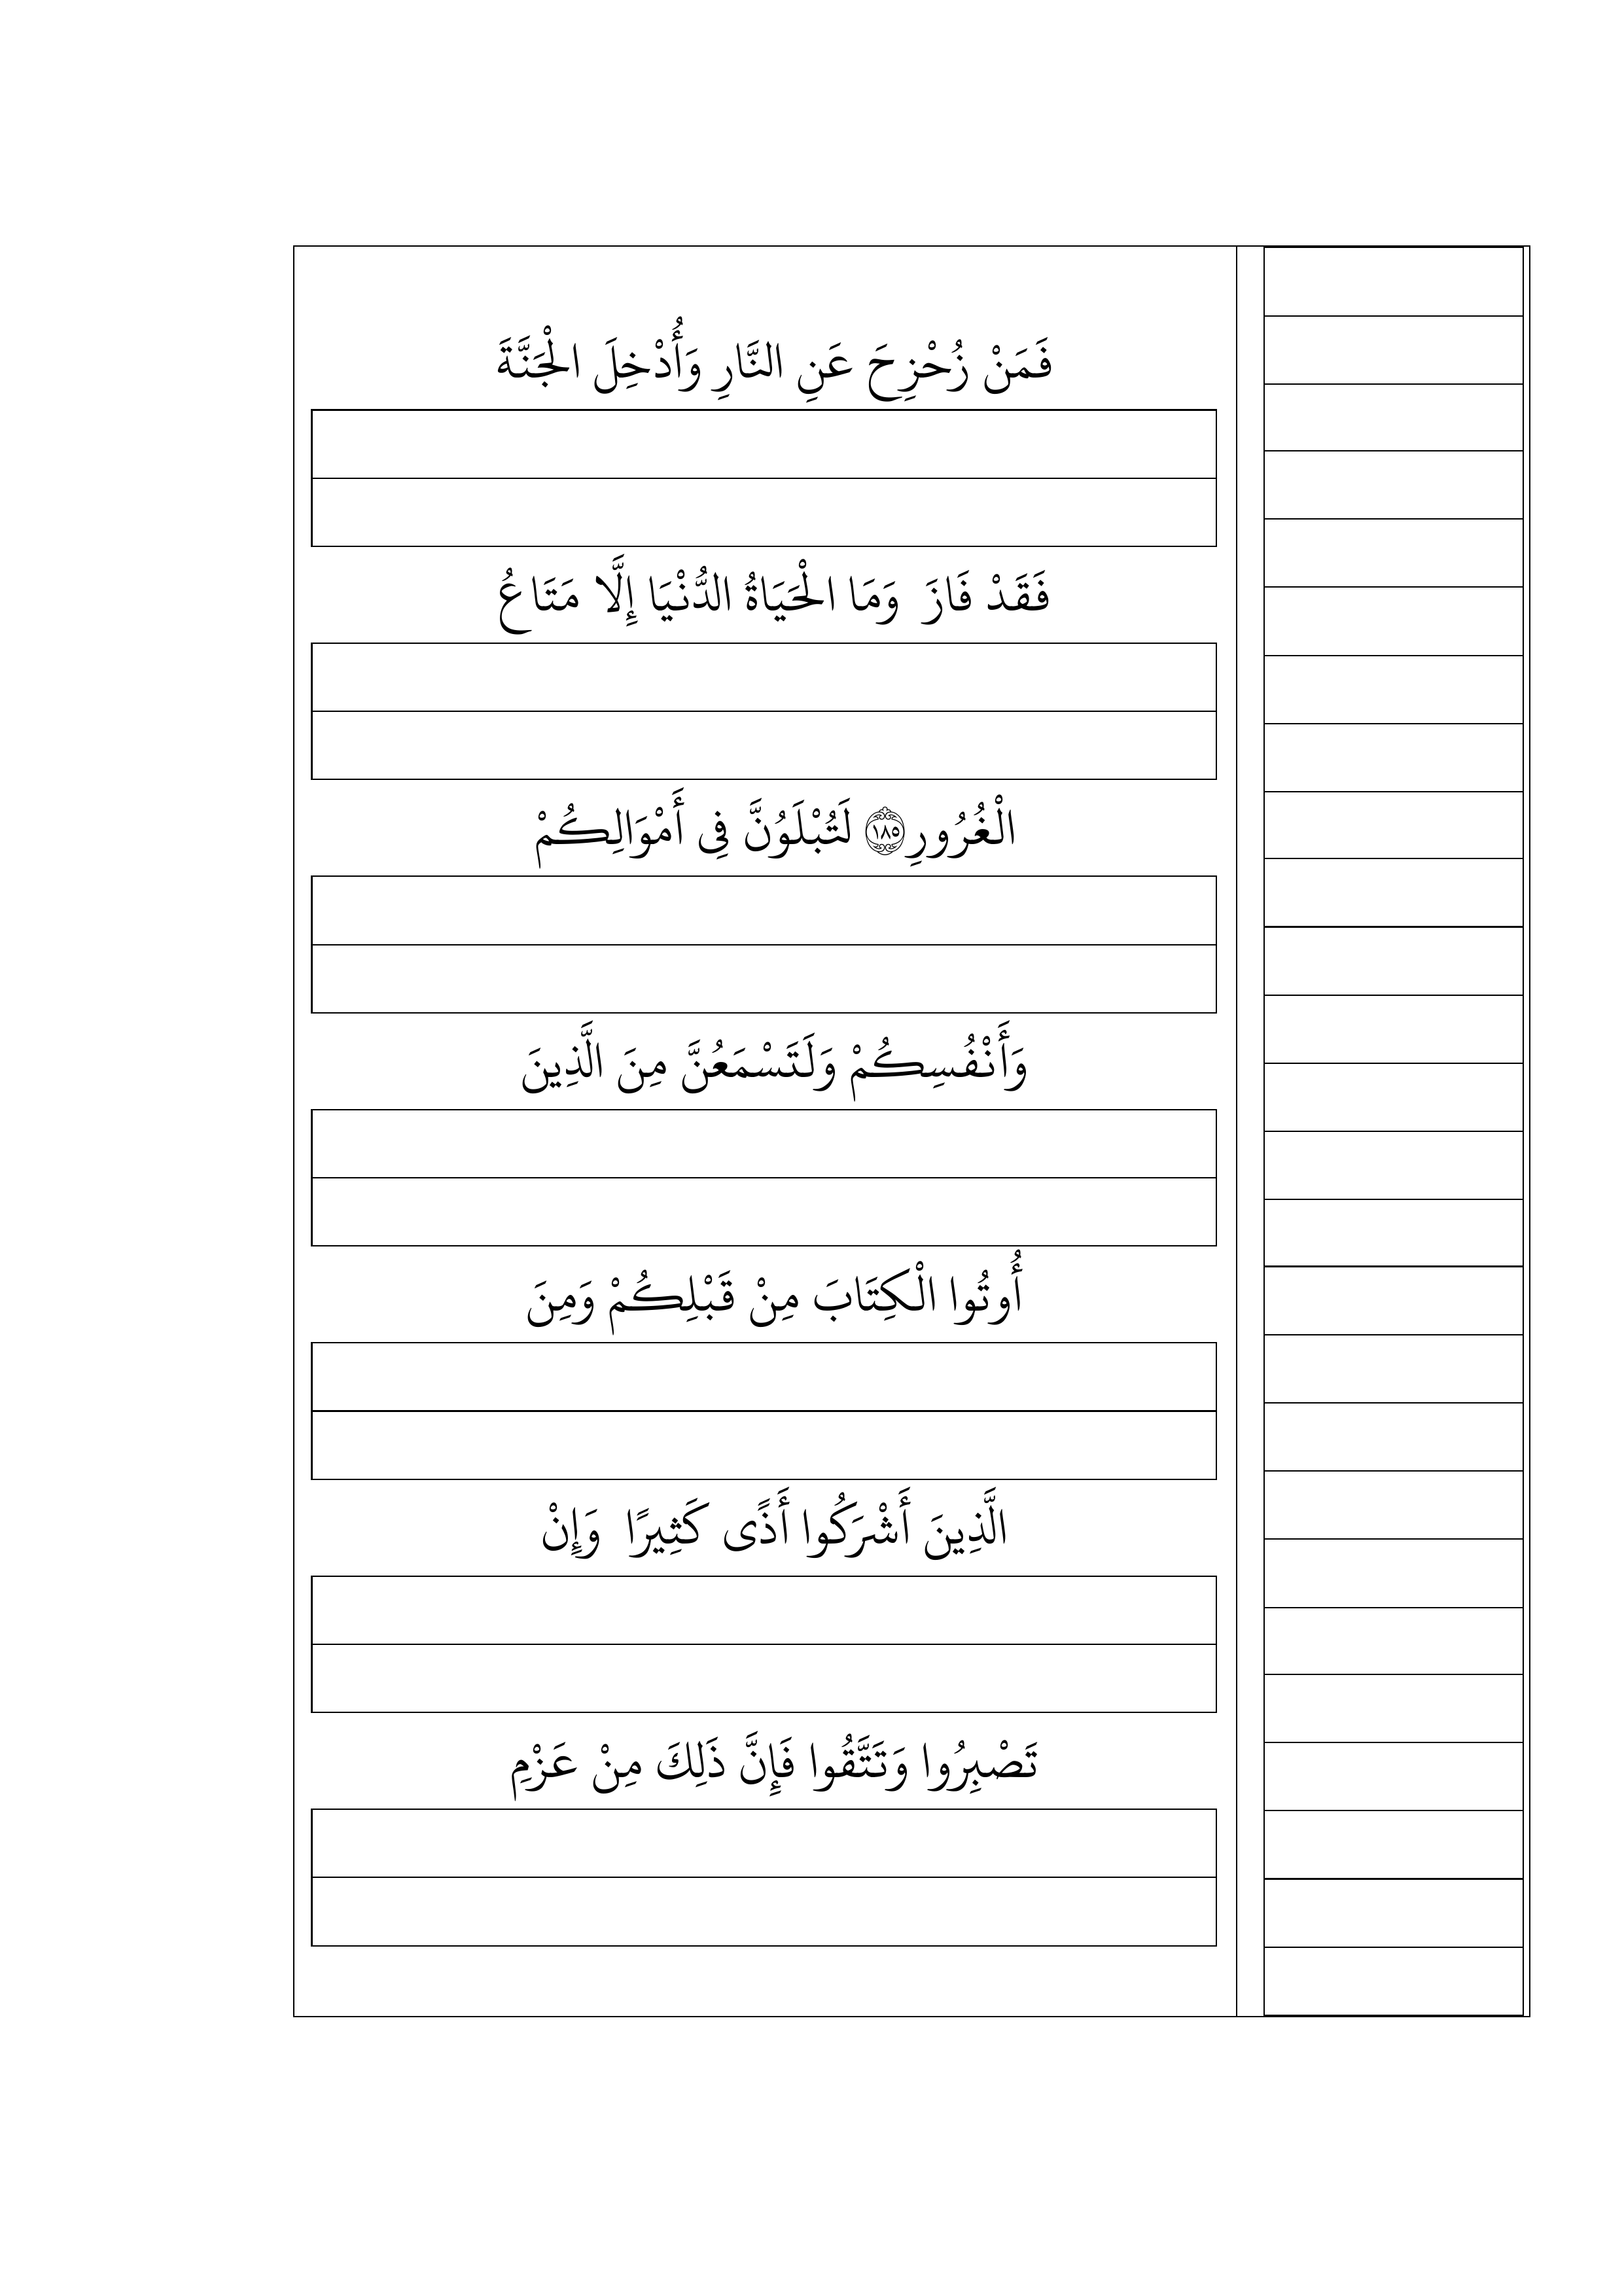 فَمَنْ زُحْزِحَ عَنِ النَّارِ وَأُدْخِلَ الْجَنَّةَ
فَقَدْ فَازَ وَمَا الْحَيَاةُ الدُّنْيَا إِلَّا مَتَاعُ
الْغُرُورِ ۝١٨٥ لَتُبْلَوُنَّ فِى أَمْوَالِكُمْ
وَأَنْفُسِكُمْ وَلَتَسْمَعُنَّ مِنَ الَّذِينَ
أُوتُوا الْكِتَابَ مِنْ قَبْلِكُمْ وَمِنَ
الَّذِينَ أَشْرَكُوا أَذًى كَثِيرًا وَإِنْ
تَصْبِرُوا وَتَتَّقُوا فَإِنَّ ذَلِكَ مِنْ عَزْمِ